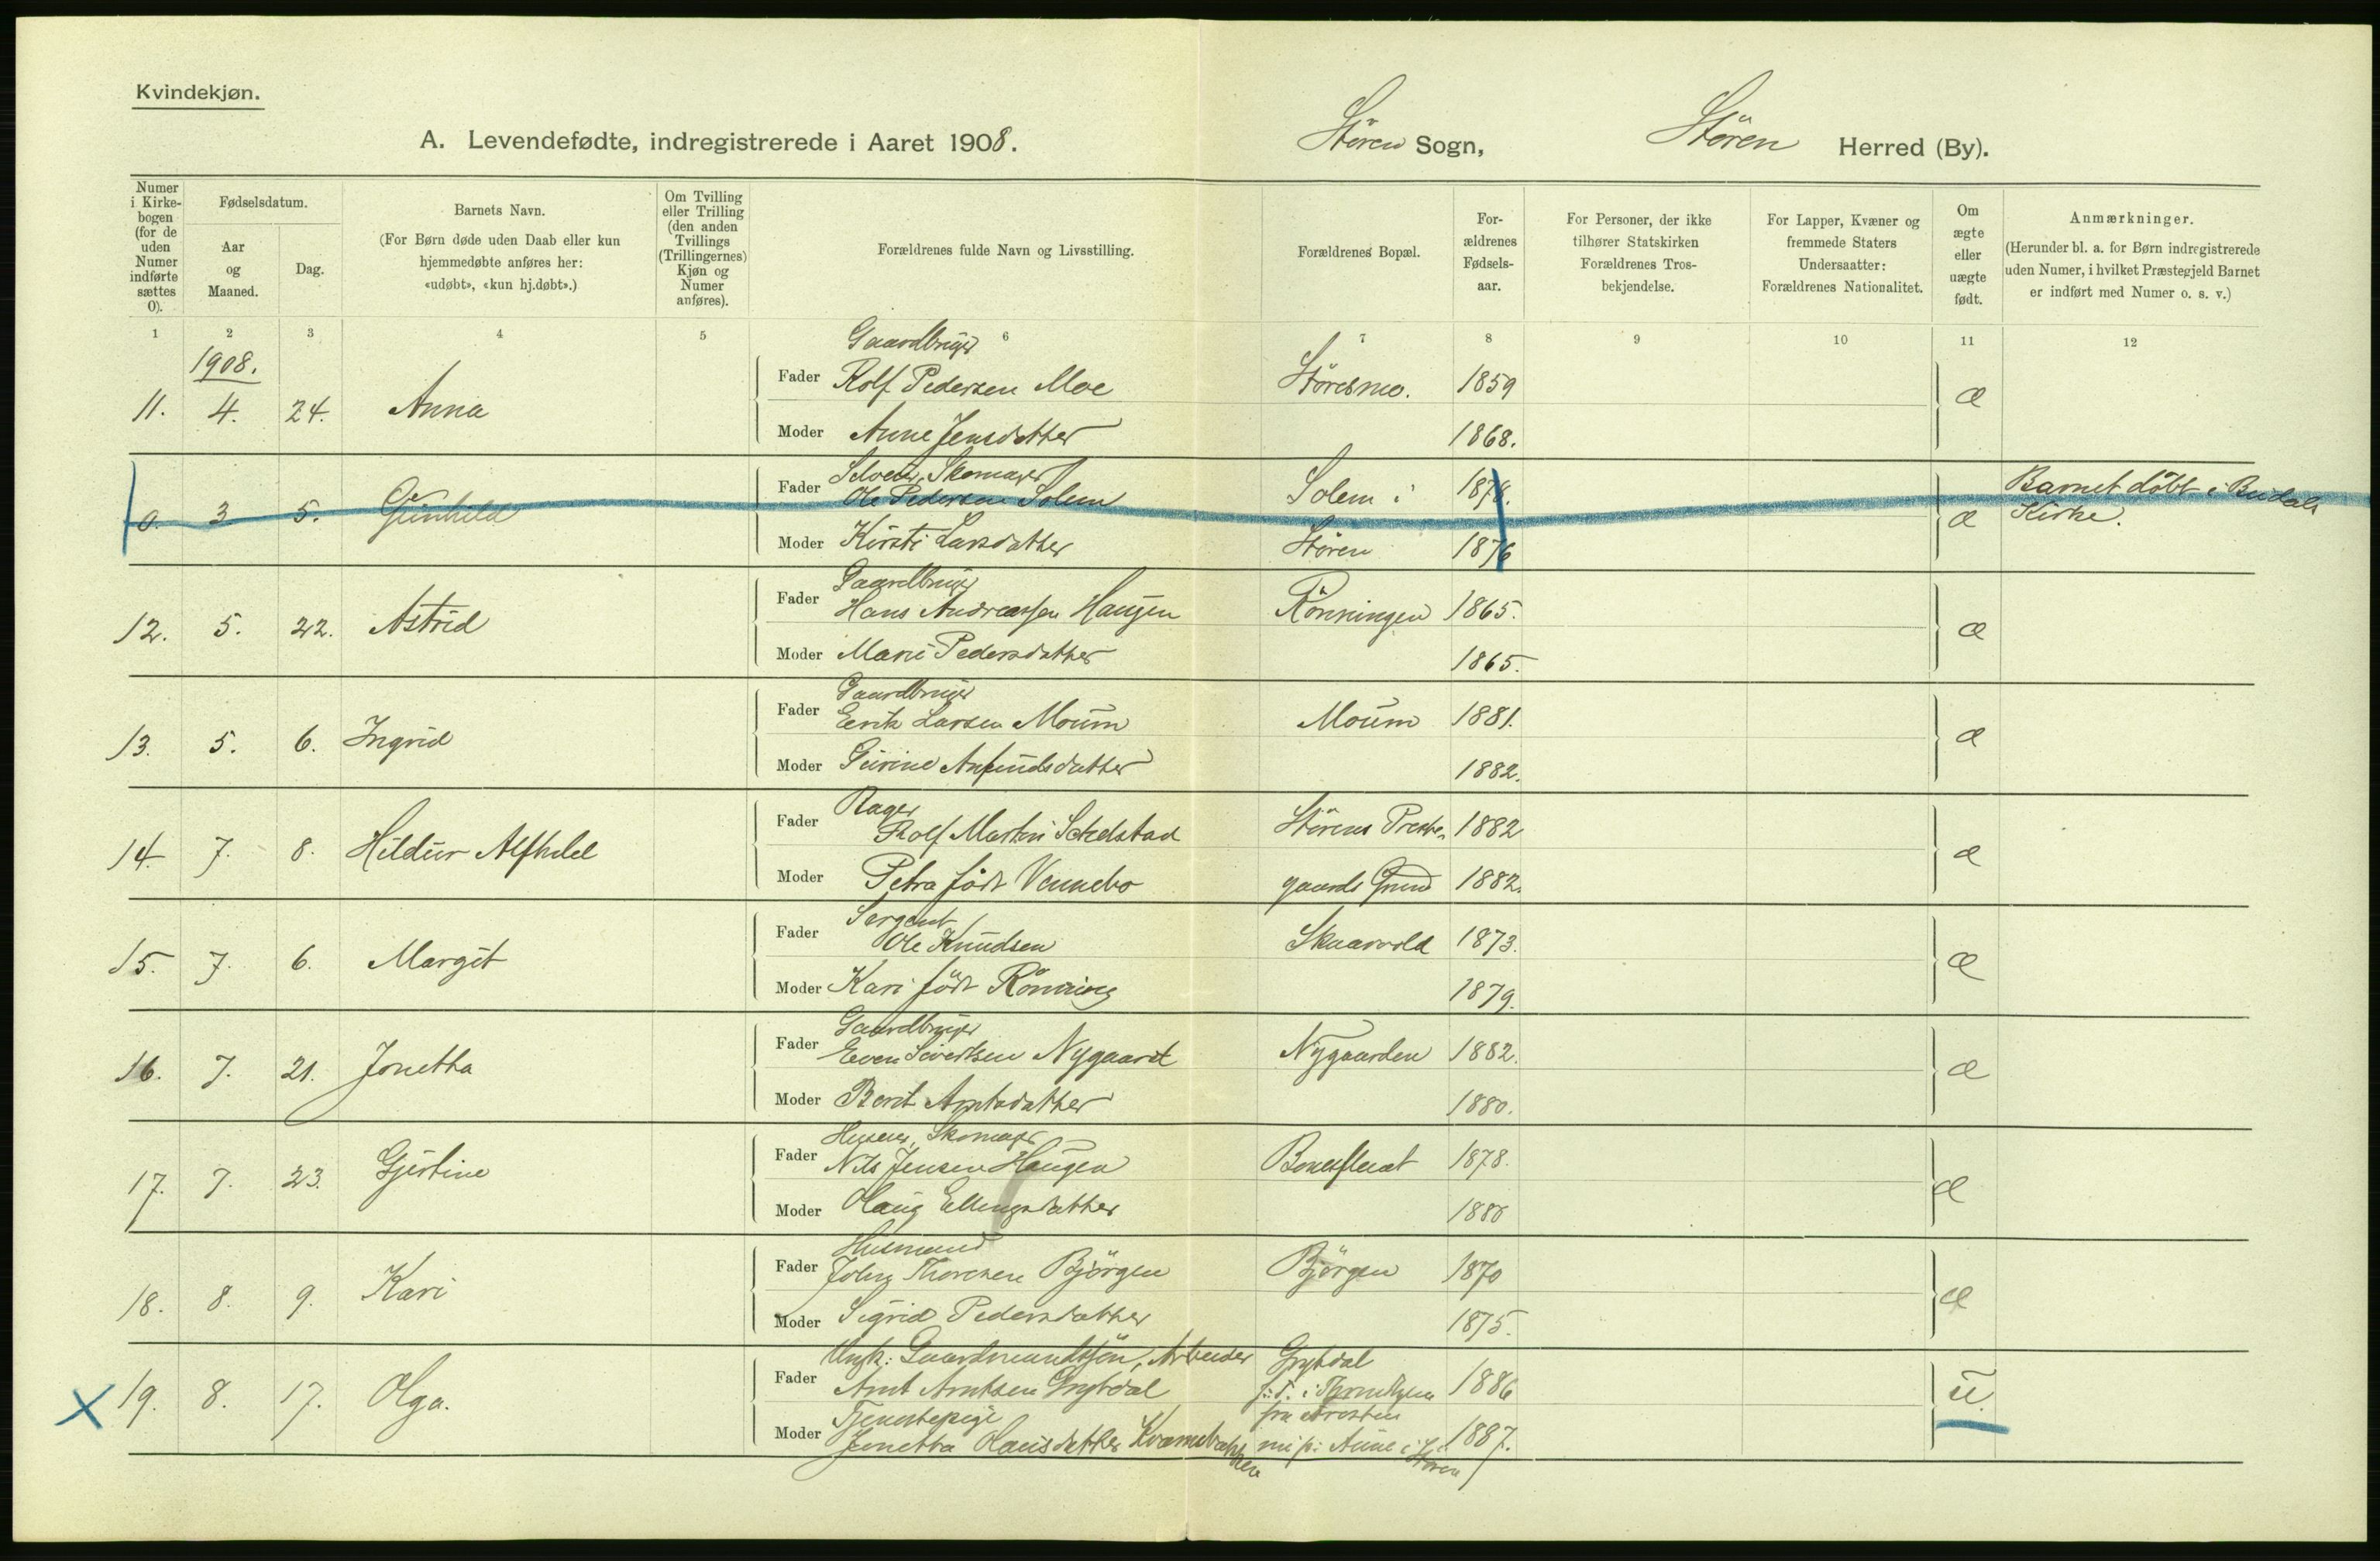 Kvindekjøn.
A. Levendefødte, indregistrerede i Aaret 1908.
Støren Sogn, Støren Herred (By).
Numer i Kirke-bogen (for de uden Numer indførte sættes 0).
Fødselsdatum.
Aar og Maaned.
Dag.
Barnets Navn.
(For Børn døde uden Daab eller kun hjemmedøbte anføres her: «udøbt», «kun hj.døbt».)
Om Tvilling eller Trilling (den anden Tvillings (Trillingernes) Kjøn og Numer anføres).
Forældrenes fulde Navn og Livsstilling.
Forældrenes Bopæl.
For-ældrenes Fødsels-aar.
For Personer, der ikke tilhører Statskirken Forældrenes Tros-bekjendelse.
For Lapper, Kvæner og fremmede Staters Undersaatter: Forældrenes Nationalitet.
Om ægte eller uægte født.
Anmærkninger.
(Herunder bl. a. for Børn indregistrerede uden Numer, i hvilket Præstegjeld Barnet er indført med Numer o. s. v.)
1 2 3 4 5 6 7 8 9 10 11 12
1908.
Gaardbruger
11. 4. 24. Anna Fader Rolf Pedersen Moe Størsmo. 1859 æ
Moder Anne Jensdatter 1868.
Selveier, Skomager
0. 3 5. Gunhild Fader Ole Pedersen Solem Solem i 1878. æ Barnet døbt i Budals Kirke.
Moder Kirsti Larsdatter Støren 1876
Gaardbruger
12. 5. 22. Astrid Fader Hans Andreassen Haugen Rønningen 1865. æ
Moder Mari Pedersdatter 1865.
Gaardbruger
13. 5. 6. Ingrid Fader Eerik Larsen Moum Moum 1881. æ
Moder Gurine Anfindsdatter 1882.
Bager
14. 7. 8. Hildur Alfhild Fader Rolf Martin Solstad Størens Preste- 1882 æ
Moder Petra født Vennebo gaards Grund 1882.
Sergent
15. 7. 6. Margit Fader Ole Knudsen Skaarvold 1873. æ
Moder Kari født Rønning 1879.
Gaardbruger
16. 7. 21. Jonetha Fader Even Sivertsen Nygaard Nygaarden 1882. æ
Moder Berit Arntsdatter 1880.
Huseier, Skomager
17. 7. 23. Gjertine Fader Nils Jensen Haugen 1878. æ
Moder Olaug Ellingsdatter 1880
Husmand
18. 8. 9. Kari Fader John Thoresen Bjørgen Bjørgen 1870 æ
Moder Sigrid Pedersdatter 1875.
Ungk: Gaardmandssøn, Arbeider Grytdal
19. 8. 17. Olga. Fader Arnt Arntsen Grytdal f. T. i Trondhjem 1886 u.
Tjenestepige
Moder Jonetta Olausdatter Kvammebakken 1887.
Støren